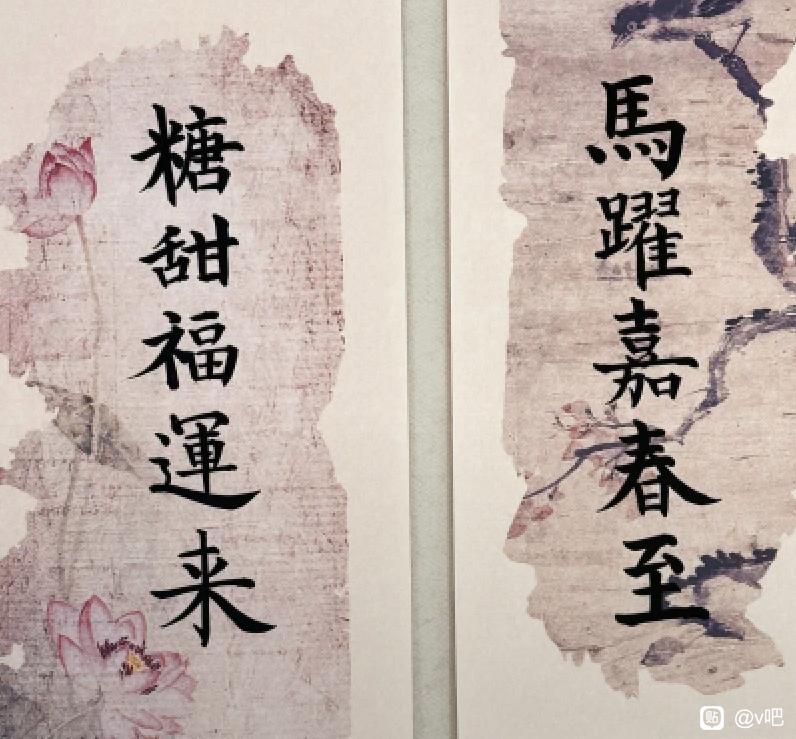 馬躍嘉春至
糖甜福運来
貼 @v吧